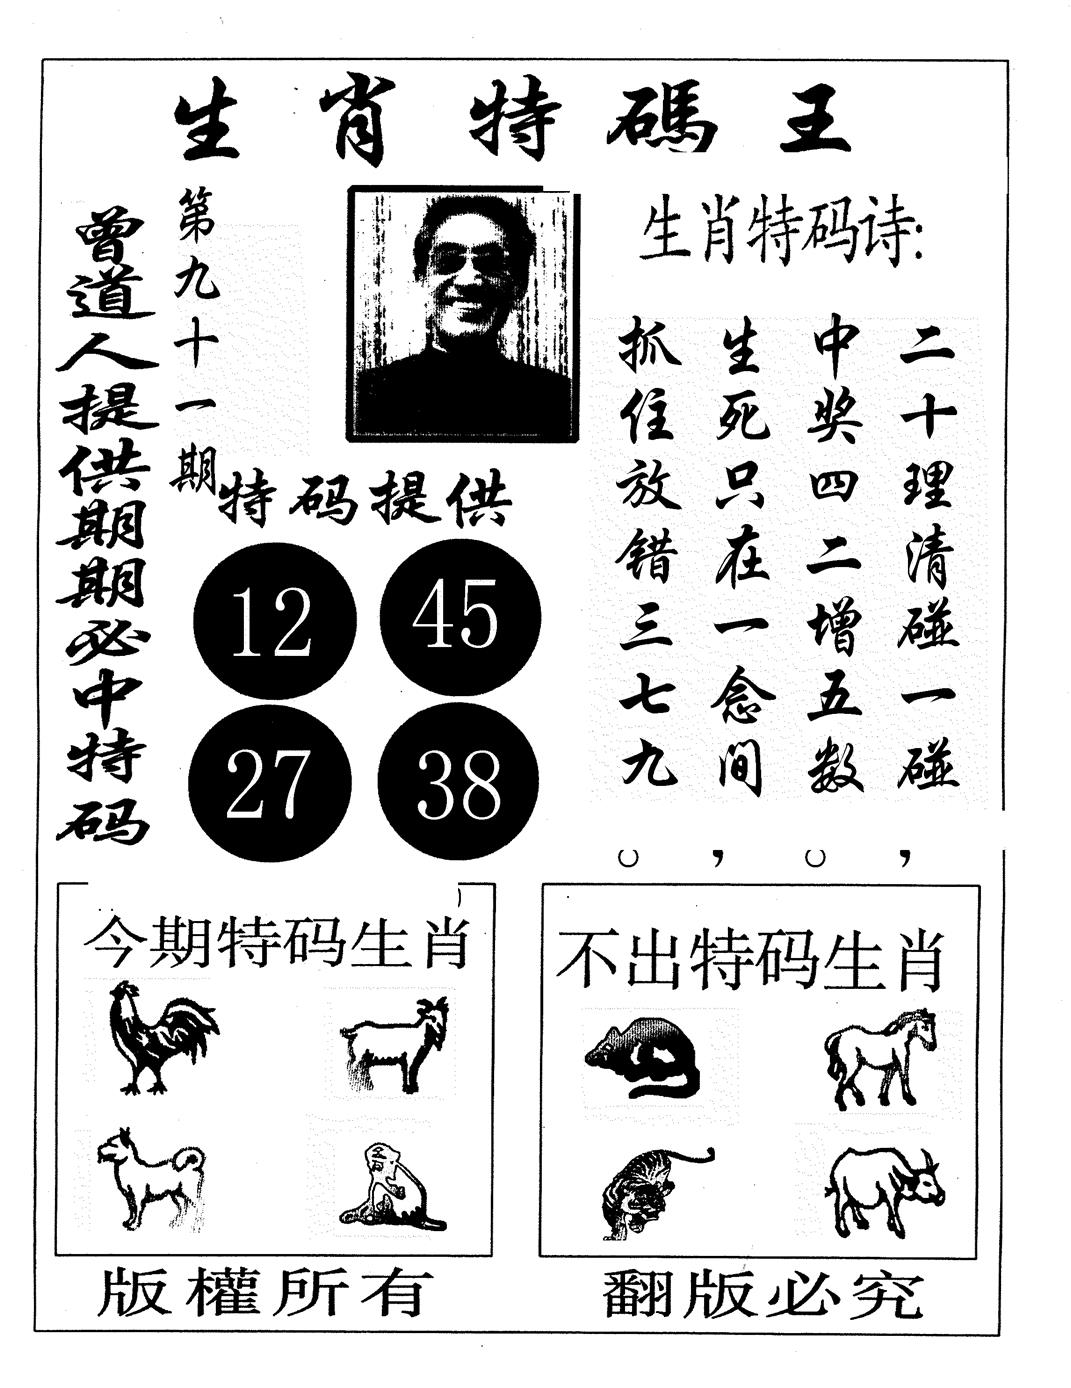 生肖特碼王
曾道人提供期期必中特码
第九十一期
生肖特码诗:
二十理清碰一碰，
中奖四二增五数。
生死只在一念间，
抓住放错三七九。
特码提供
12 45
27 38
今期特码生肖
不出特码生肖
版權所有
翻版必究